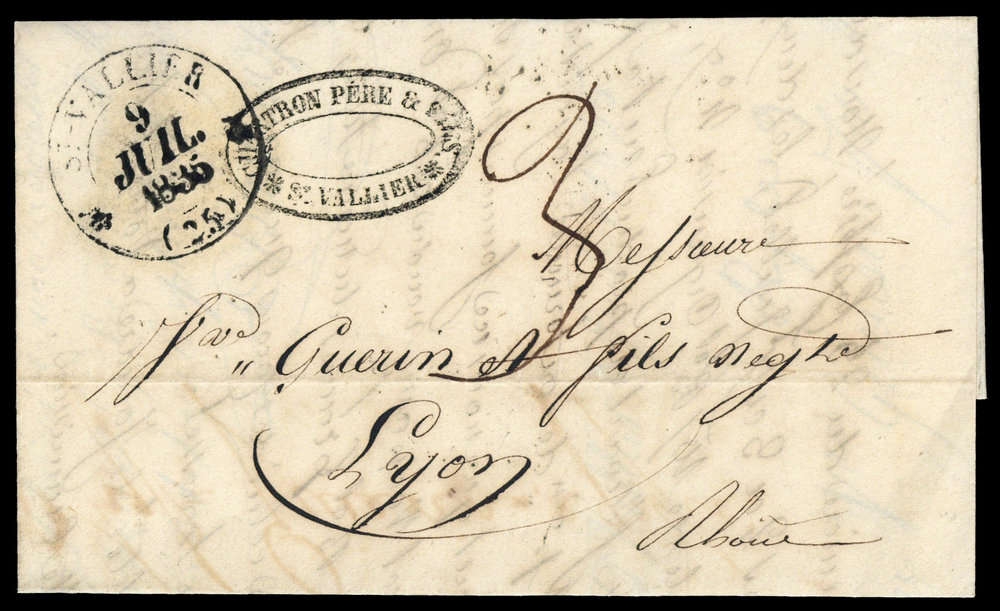 ST-VALLIER
9
JUIL.
1835
(25)
CHARTRON PÈRE & FILS
* ST VALLIER *
3
Messieurs
Vve Guerin et fils negts
Lyon
Rhône